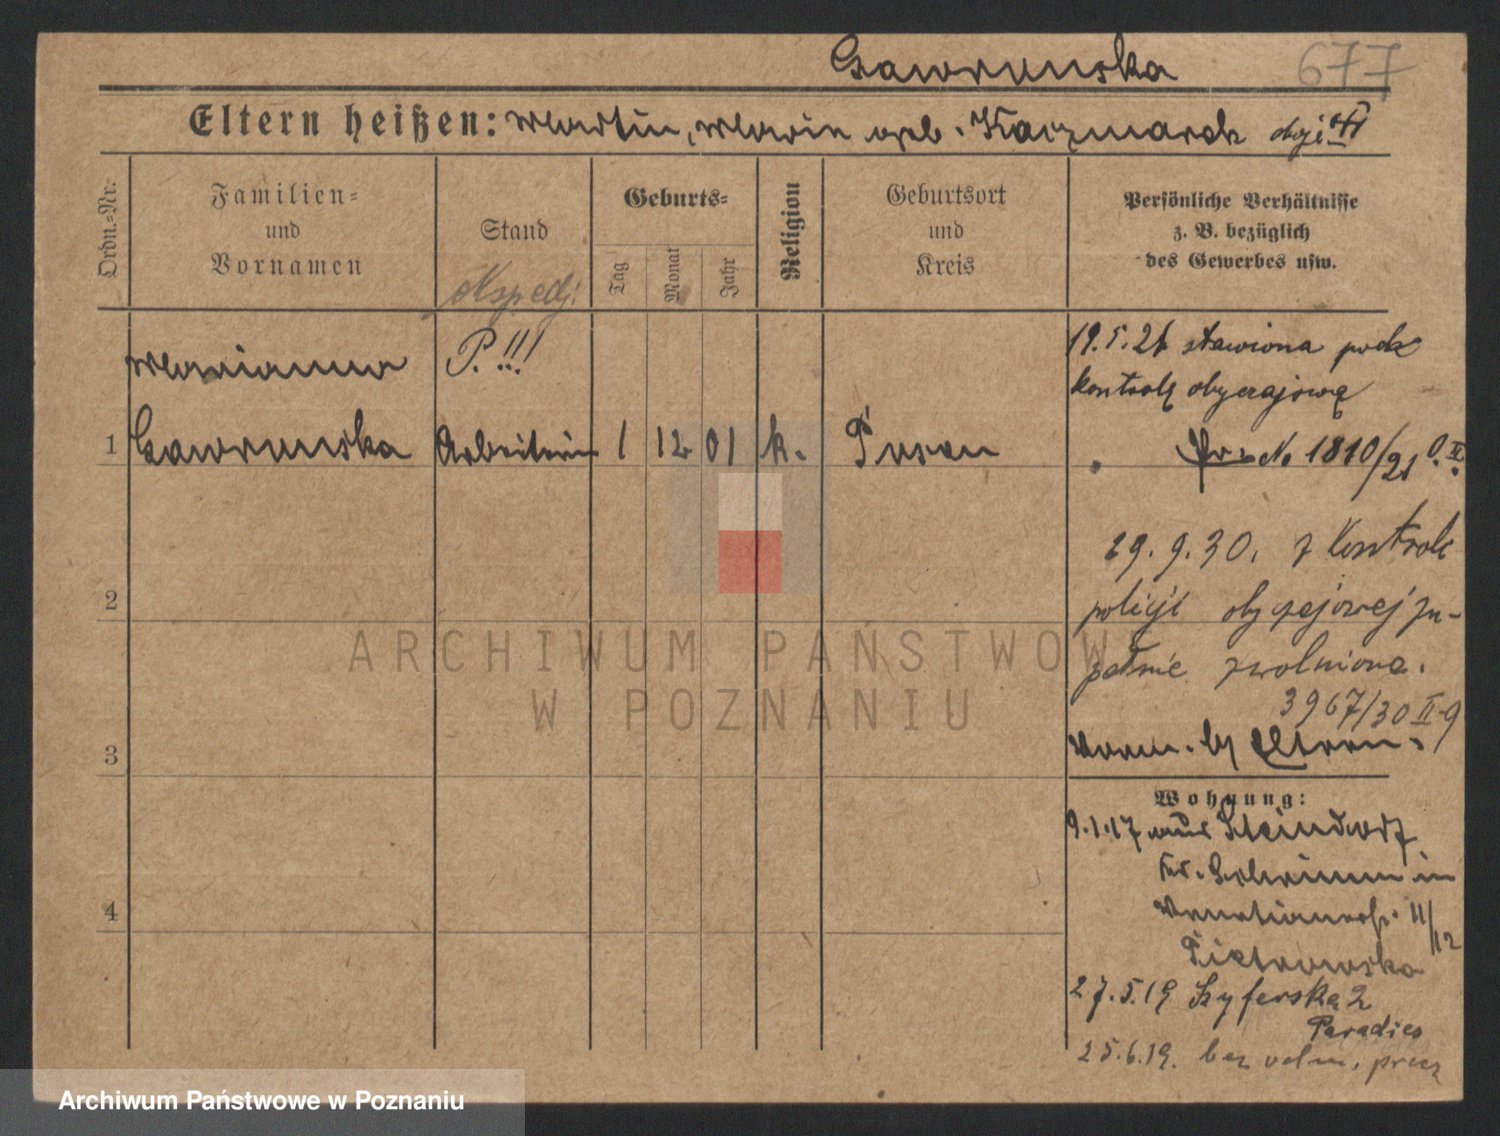 Gawronska
677
Eltern heißen: Martin, Marie geb. Kaczmarek
Ordn.-Nr.
Familien-
und
Vornamen
Stand
Geburts-
Tag
Monat
Jahr
Religion
Geburtsort
und
Kreis
Persönliche Verhältnisse
z. B. bezüglich
des Gewerbes usw.
P. !!!
Marianna
1 Gawronska Arbeiterin 1 12 01 k. Posen
19.5.21 stawiona pod
kontrolę obyczajową
No 1810/21
29.9.30. z Kontrole
policji obyczajowej zu-
pełnie zwolniona.
3967/30 II-9
2
3
4
Wohnung:
9.1.17 aus Steindorf
Kr. Schrimm in
Venetianerstr. 11/12
Pietrowska
27.5.19 Szyferska 2
Paradies
25.6.19. bez
ARCHIWUM PAŃSTWOWE
W POZNANIU
Archiwum Państwowe w Poznaniu